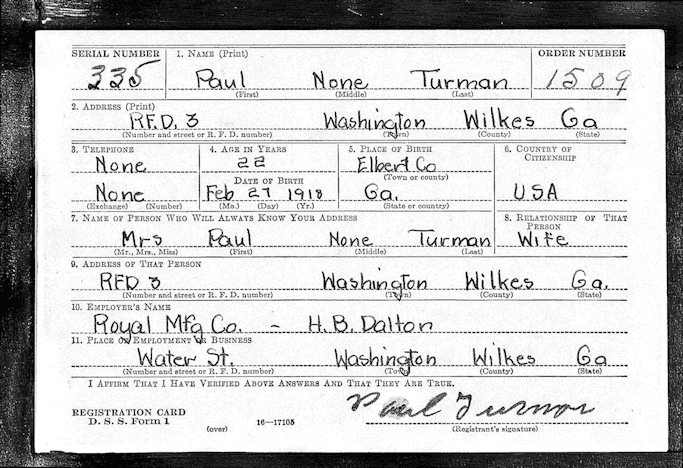 SERIAL NUMBER 1. NAME (Print) ORDER NUMBER
335 Paul None Turman 1509
(First) (Middle) (Last)
2. ADDRESS (Print)
RFD. 3 Washington Wilkes Ga
(Number and street or R. F. D. number) (Town) (County) (State)
3. TELEPHONE 4. AGE IN YEARS 5. PLACE OF BIRTH 6. COUNTRY OF CITIZENSHIP
None 22 Elbert Co
DATE OF BIRTH (Town or county)
None Feb 27 1918 Ga. USA
(Exchange) (Number) (Mo.) (Day) (Yr.) (State or country)
7. NAME OF PERSON WHO WILL ALWAYS KNOW YOUR ADDRESS 8. RELATIONSHIP OF THAT PERSON
Mrs Paul None Turman Wife
(Mr., Mrs., Miss) (First) (Middle) (Last)
9. ADDRESS OF THAT PERSON
RFD 3 Washington Wilkes Ga.
(Number and street or R. F. D. number) (Town) (County) (State)
10. EMPLOYER'S NAME
Royal Mfg Co. - H. B. Dalton
11. PLACE OF EMPLOYMENT OR BUSINESS
Water St. Washington Wilkes Ga
(Number and street or R. F. D. number) (Town) (County) (State)
I AFFIRM THAT I HAVE VERIFIED ABOVE ANSWERS AND THAT THEY ARE TRUE.
REGISTRATION CARD Paul Turman
D. S. S. Form 1 (over) 16—17105 (Registrant's signature)